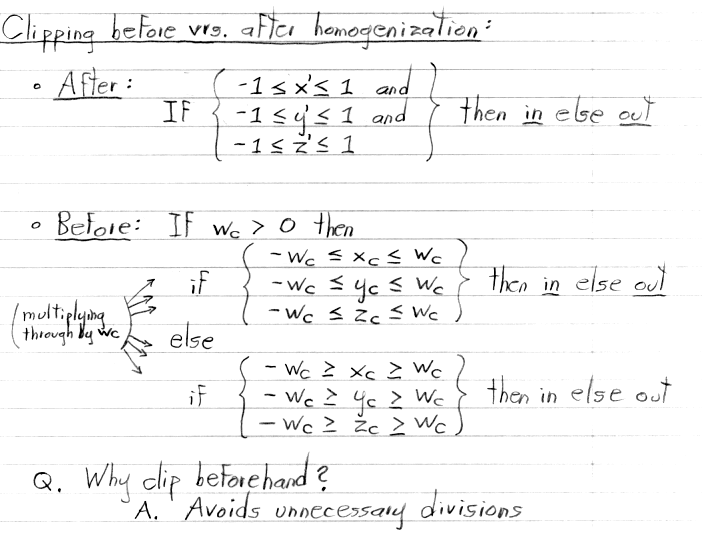 Clipping before vrs. after homogenization:
• After:
IF { -1 ≤ x' ≤ 1 and
-1 ≤ y' ≤ 1 and
-1 ≤ z' ≤ 1 } then in else out
• Before: If wc > 0 then
if { -wc ≤ xc ≤ wc
-wc ≤ yc ≤ wc
-wc ≤ zc ≤ wc } then in else out
(multiplying
through by wc
else
if { -wc ≥ xc ≥ wc
-wc ≥ yc ≥ wc
-wc ≥ zc ≥ wc } then in else out
Q. Why clip beforehand?
A. Avoids unnecessary divisions